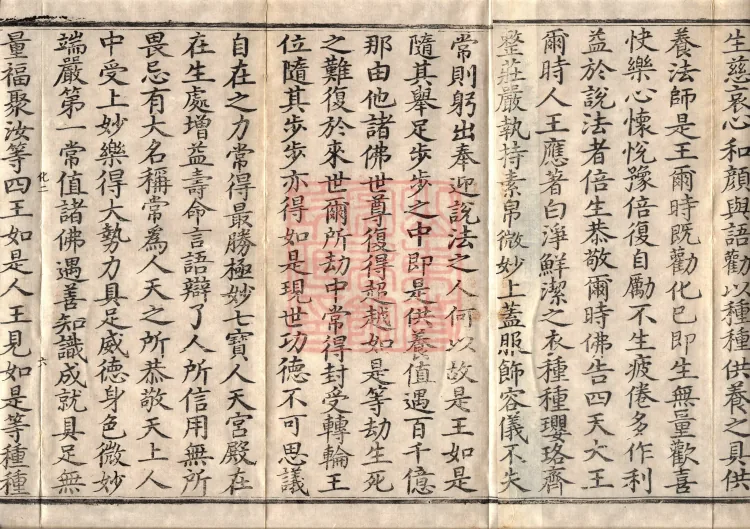 生慈哀心和顏與語勸以種種供養之具供
養法師是王爾時既勸化已即生無量歡喜
快樂心懷悅豫倍復自勵不生疲倦多作利
益於說法者倍生恭敬爾時佛告四天大王
爾時人王應著白淨鮮潔之衣種種瓔珞齊
整莊嚴執持素帛微妙上蓋服飾容儀不失
常則躬出奉迎說法之人何以故是王如是
隨其舉足步步之中即是供養值遇百千億
那由他諸佛世尊復得超越如是等劫生死
之難復於來世爾所劫中常得封受轉輪王
位隨其步步亦得如是現世功德不可思議
自在之力常得最勝極妙七寶人天宮殿在
在生處增益壽命言語辯了人所信用無所
畏忌有大名稱常為人天之所恭敬天上人
中受上妙樂得大勢力具足威德身色微妙
端嚴第一常值諸佛遇善知識成就具足無
化二
六
量福聚汝等四王如是人王見如是等種種